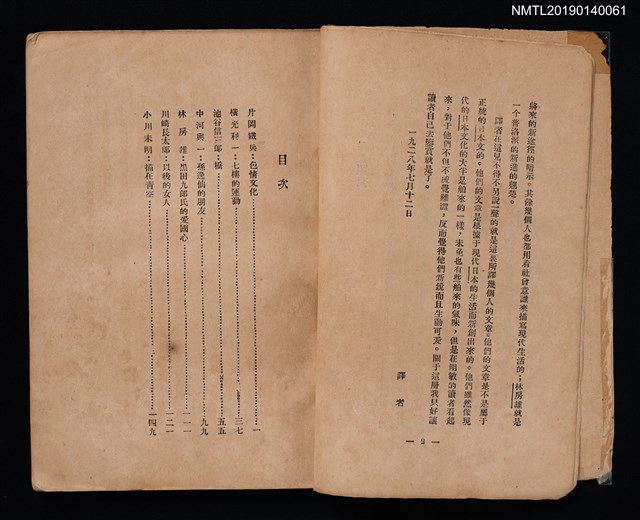 NMTL20190140061
將來的新途徑的暗示。其餘幾個人也都用着社會意識來描寫現代生活的；林房雄就是
一个普洛派的新進的翹楚。
譯者在這兒不得不另說一聲的就是這裏所譯幾個人的文章。他們的文章是不是屬于
正統的日本文的。他們的文章是根據于現代日本的生活而新創出來的。他們雖然像現
代的日本文化的大半是舶來的一樣，未免也有些舶來的氣味，但是在明敏的讀者看起
來，對于他們不但不感覺難澀，反而覺得他們新銳而且生動可愛。關于這層我只好讓
讀者自己去感賞就是了。
一九二八年七月十二日
譯者
— 2 —
目次
片岡鐵兵：色情文化……一
橫光利一：七樓的運動……三七
池谷信三郎：橋……五五
中河與一：孫逸仙的朋友……九九
林房雄：黑田九郎氏的愛國心……一一一
川崎長太郎：以後的女人……一二一
小川未明：描在青空……一四九